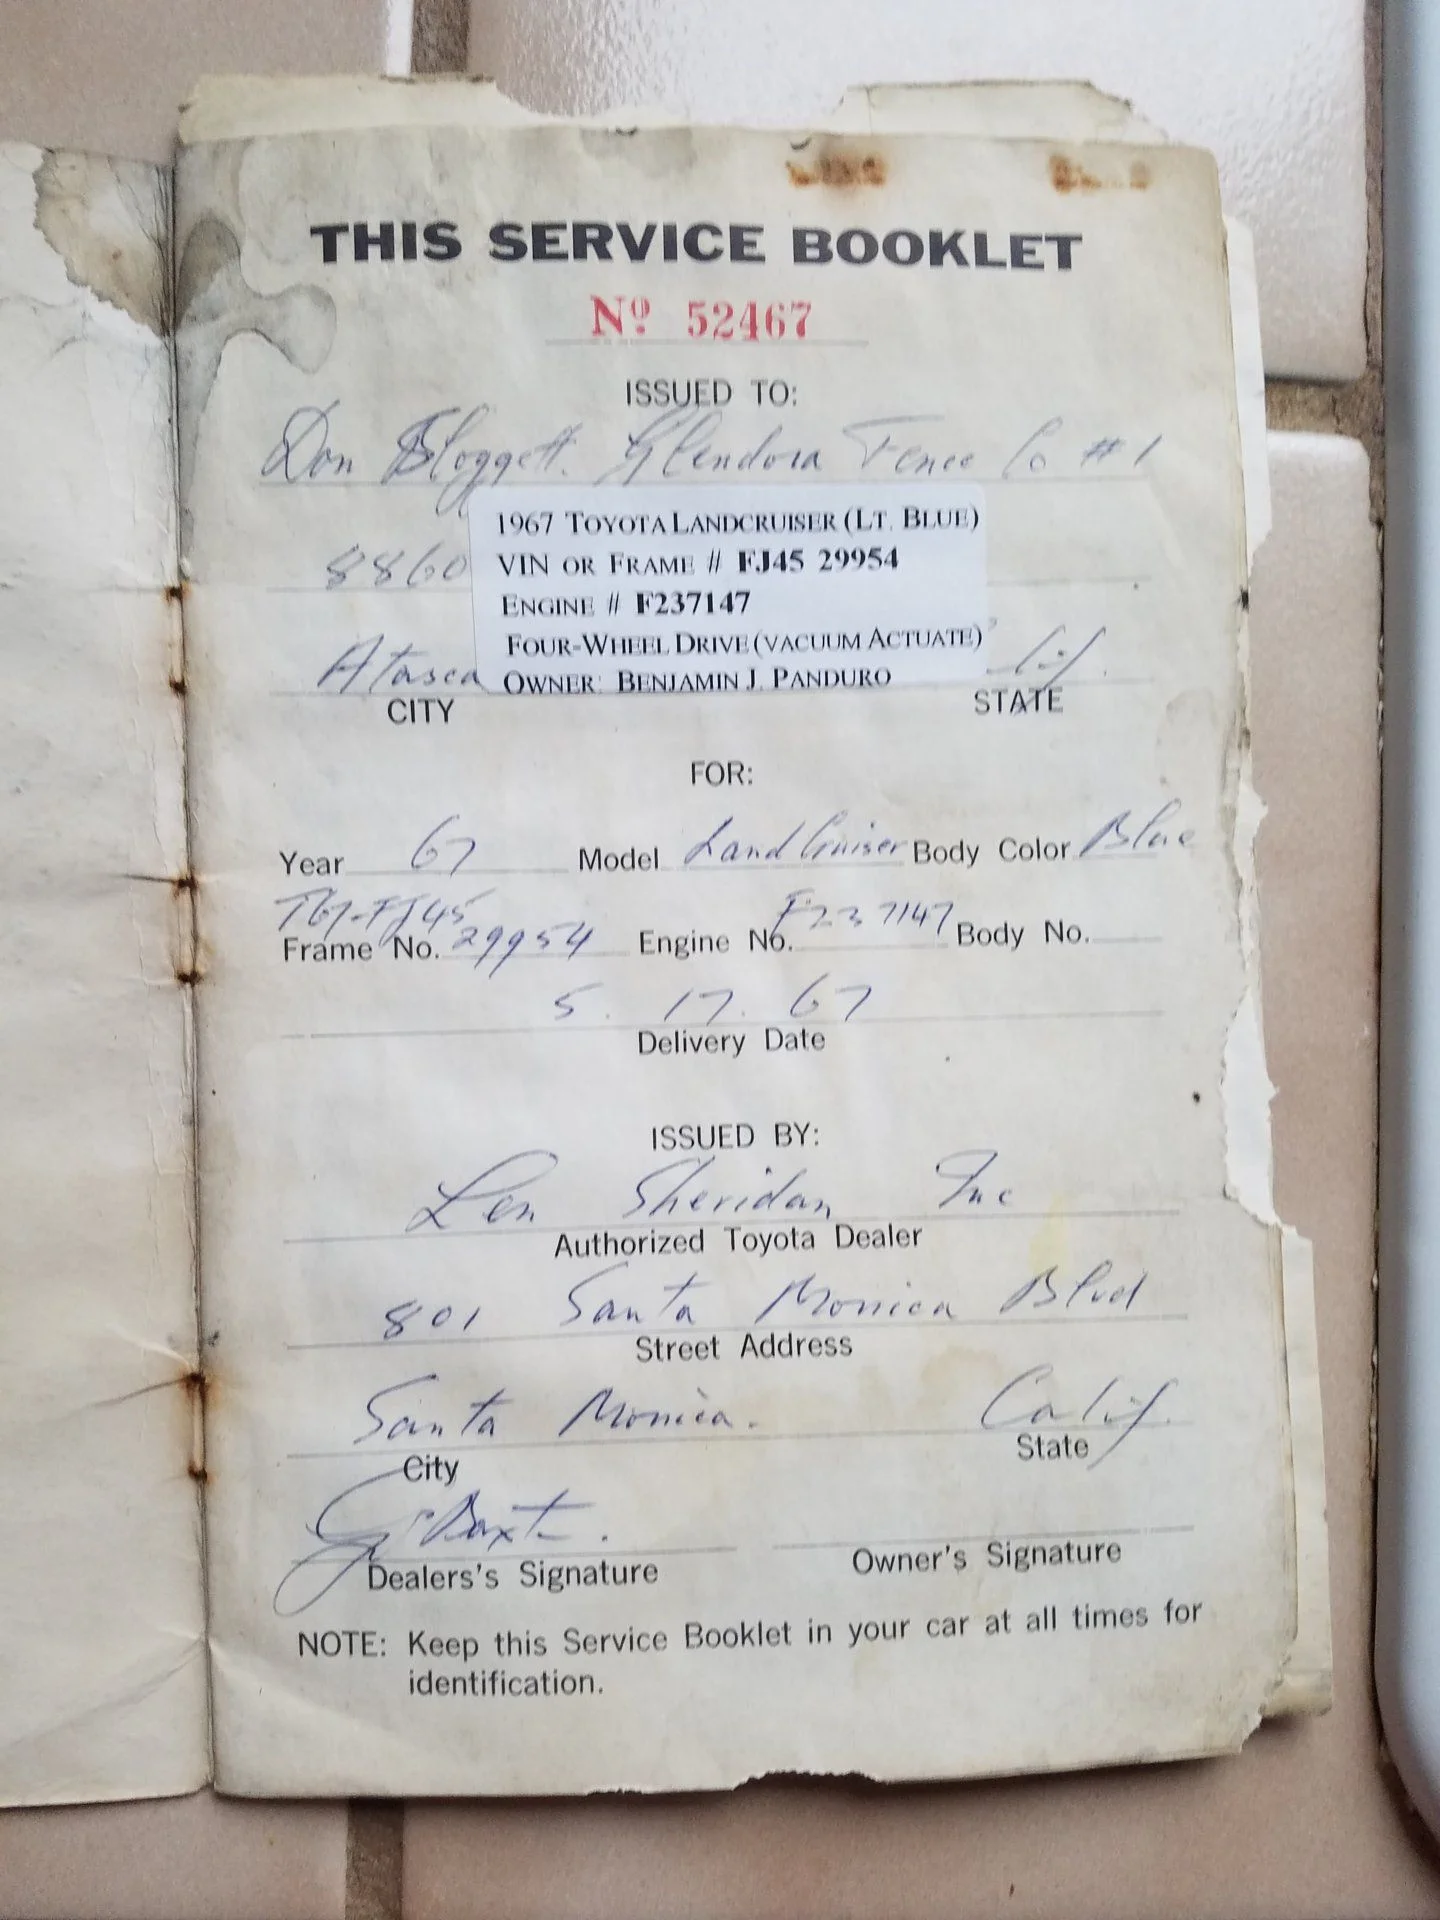 THIS SERVICE BOOKLET
Nº 52467
ISSUED TO:
Don Bloggett. Glendora Fence Co #1
1967 TOYOTA LANDCRUISER (LT. BLUE)
8860
VIN OR FRAME # FJ45 29954
ENGINE # F237147
FOUR-WHEEL DRIVE (VACUUM ACTUATE)
Atasca
OWNER: BENJAMIN J. PANDURO
CITY STATE
FOR:
Year 67 Model Land Cruiser Body Color Blue
T67-FJ45
Frame No. 29954 Engine No. F237147 Body No.
5. 17. 67
Delivery Date
ISSUED BY:
Len Sheridan Inc
Authorized Toyota Dealer
801 Santa Monica Blvd
Street Address
Santa Monica. Calif.
City State
Dealers's Signature Owner's Signature
NOTE: Keep this Service Booklet in your car at all times for
identification.